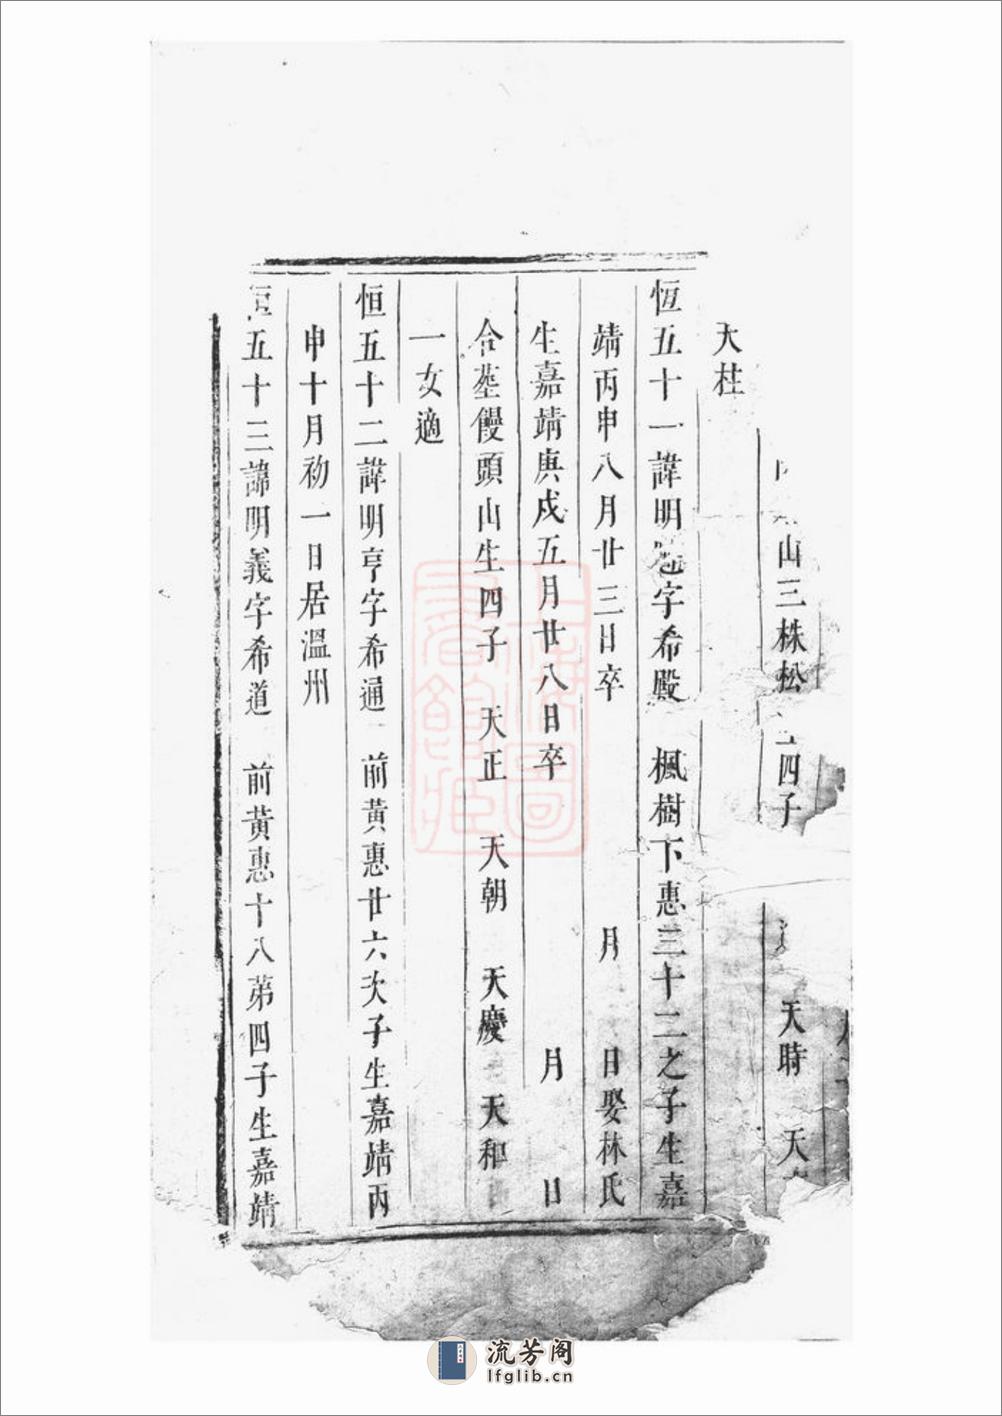 山三株松 四子 天時 天
天柱
恒五十一諱明 字希殿 楓樹下惠三十二之子生嘉
靖丙申八月廿三日卒 月 日娶林氏
生嘉靖庚戌五月廿八日卒 月 日
合塟饅頭山生四子 天正 天朝 天慶 天和
一女適
恒五十二諱明亨字希通 前黃惠廿六次子生嘉靖丙
申十月初一日居溫州
恒五十三諱明義字希道 前黃惠十八第四子生嘉靖
上海圖書館藏
流芳阁
lfglib.cn